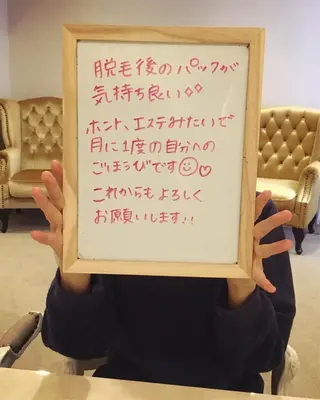 脱毛後のパックが
気持ち良い◇◇
ホント、エステみたいで
月に1度の自分への
ごほうびです☺♡
これからもよろしく
お願いします!!